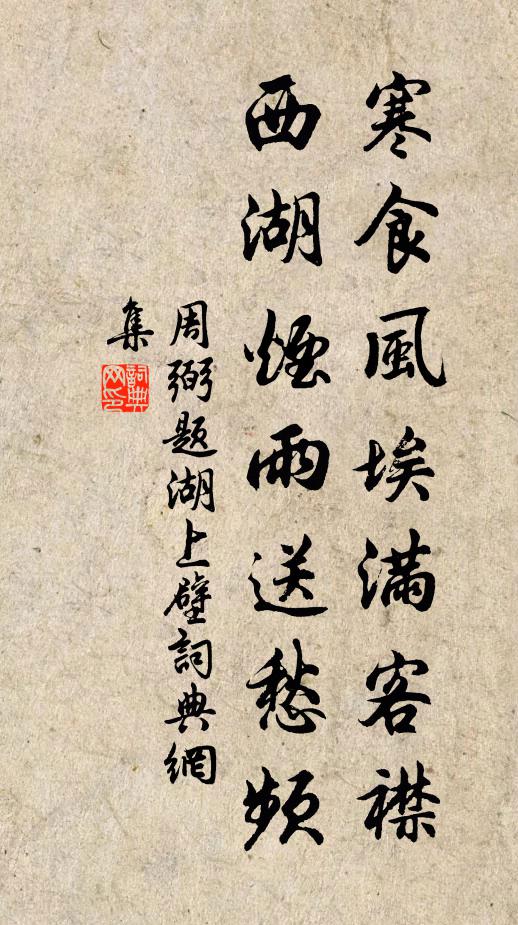 寒食風埃滿客襟
西湖煙雨送愁頻
周弼題湖上壁詞典網
集
詞典
网印